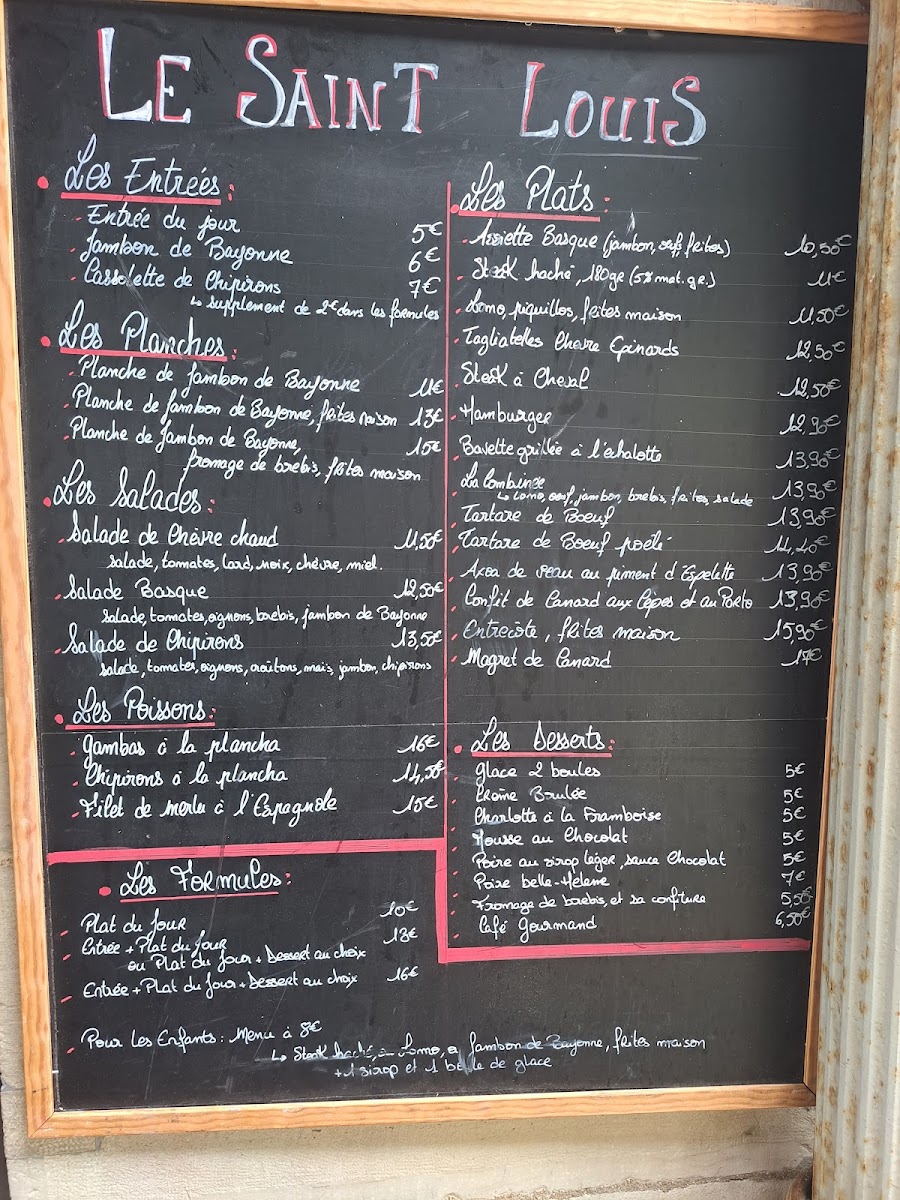 LE SAINT LOUIS
Les Entrées :
- Entrée du jour 5€
- Jambon de Bayonne 6€
- Cassolette de Chipirons 7€
↳ supplement de 2€ dans les formules
Les Planches :
- Planche de Jambon de Bayonne 11€
- Planche de Jambon de Bayonne, frites maison 13€
- Planche de Jambon de Bayonne, 15€
fromage de brebis, frites maison
Les Salades :
- Salade de Chèvre chaud 11,50€
salade, tomates, lard, noix, chèvre, miel.
- Salade Basque 12,50€
Salade, tomates, oignons, brebis, jambon de Bayonne
- Salade de Chipirons 13,50€
salade, tomates, oignons, croûtons, maïs, jambon, chipirons
Les Poissons :
- Gambas à la plancha 16€
- Chipirons à la plancha 14,50€
- Filet de merlu à l'Espagnole 15€
Les Formules :
- Plat du Jour 10€
- Entrée + Plat du Jour 13€
ou Plat du Jour + Dessert au choix
- Entrée + Plat du Jour + Dessert au choix 16€
- Pour les Enfants : Menu à 8€
↳ Steak haché, Lomo, o Jambon de Bayonne, frites maison
+ 1 sirop et 1 boule de glace
Les Plats :
- Assiette Basque (jambon, oeufs, frites) 10,50€
- Steak haché, 180gr (5% mat. gr.) 11€
- Lomo, piquillos, frites maison 11,50€
- Tagliatelles Chèvre Epinards 12,50€
- Steak à Cheval 12,50€
- Hamburger 12,90€
- Bavette grillée à l'échalotte 13,90€
- La Combinée 13,90€
↳ Lomo, oeuf, jambon, brebis, frites, salade
- Tartare de Boeuf 13,90€
- Tartare de Boeuf poêlé 14,40€
- Axoa de veau au piment d'Espelette 13,90€
- Confit de Canard aux Cèpes et au Porto 13,90€
- Entrecôte, frites maison 15,90€
- Magret de Canard 17€
Les Desserts :
- Glace 2 boules 5€
- Crème Brulée 5€
- Charlotte à la Framboise 5€
- Mousse au Chocolat 5€
- Poire au sirop léger, sauce Chocolat 5€
- Poire belle-Hélène 7€
- Fromage de brebis, et sa confiture 5,50€
- Café Gourmand 6,50€